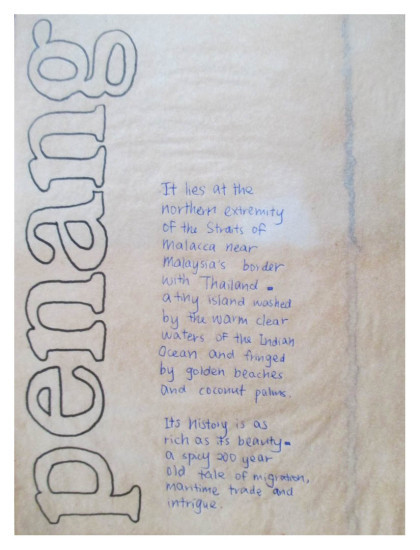 penang
It lies at the
northern extremity
of the Straits of
Malacca near
Malaysia's border
with Thailand -
a tiny island washed
by the warm clear
waters of the Indian
Ocean and fringed
by golden beaches
and coconut palms.
Its history is as
rich as its beauty-
a spicy 200 year
old tale of migration,
maritime trade and
intrigue.